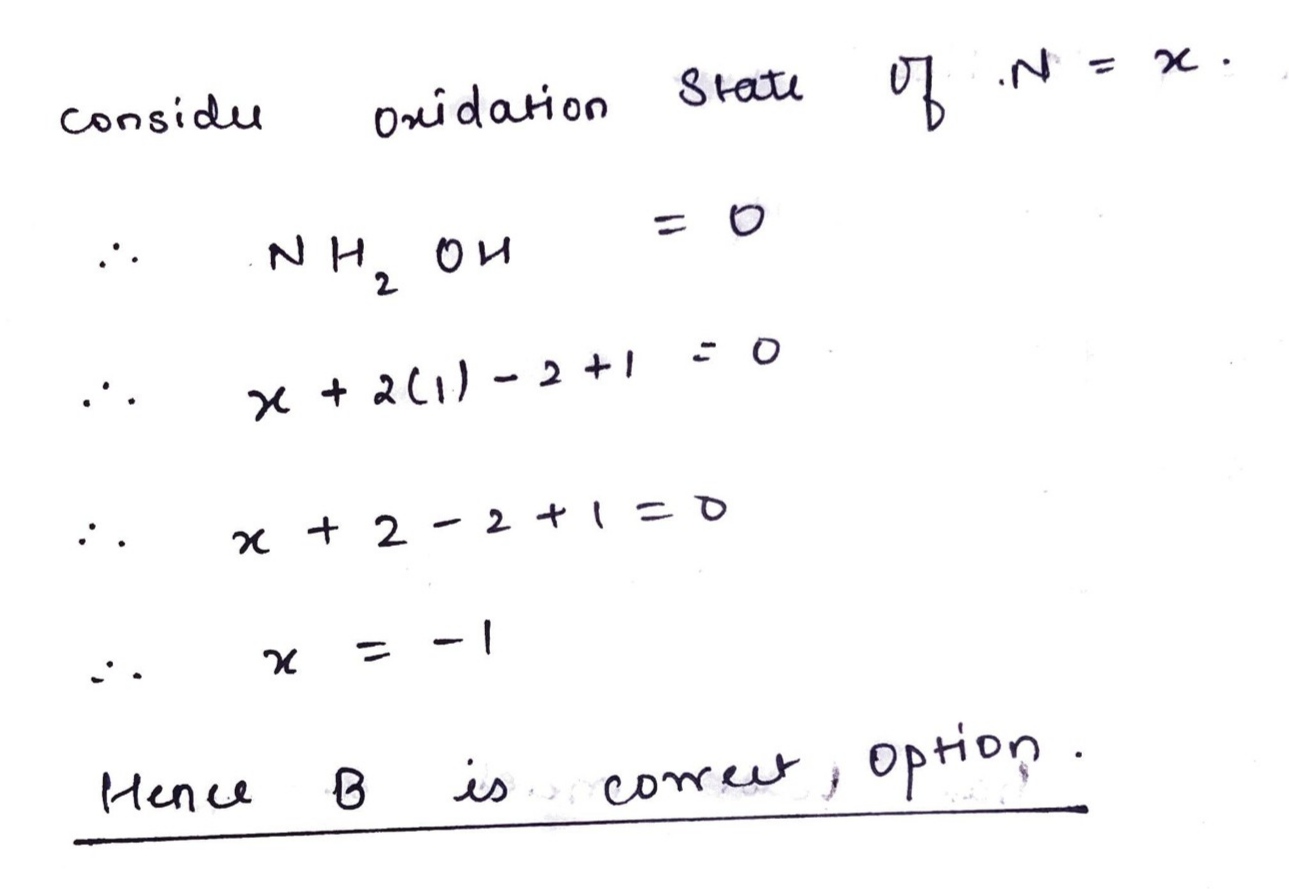 consider oxidation State of N = x.
∴ NH₂ OH = 0
∴ x + 2(1) - 2 + 1 = 0
∴ x + 2 - 2 + 1 = 0
∴ x = -1
Hence B is correct, option.